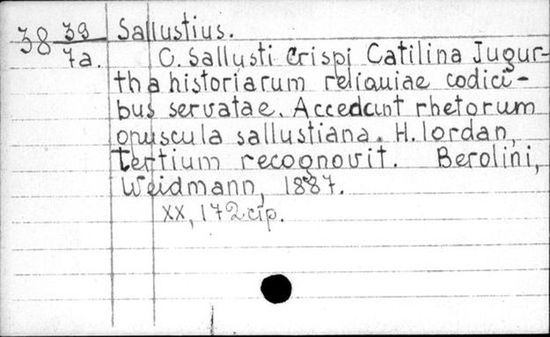 38 39/7a. Sallustius.
C. Sallusti Crispi Catilina Jugur-
tha historiarum reliquiae codici-
bus servatae. Accedunt rhetorum
opuscula sallustiana. H. Iordan,
tertium recognovit. Berolini,
Weidmann, 1887.
XX, 172 стр.